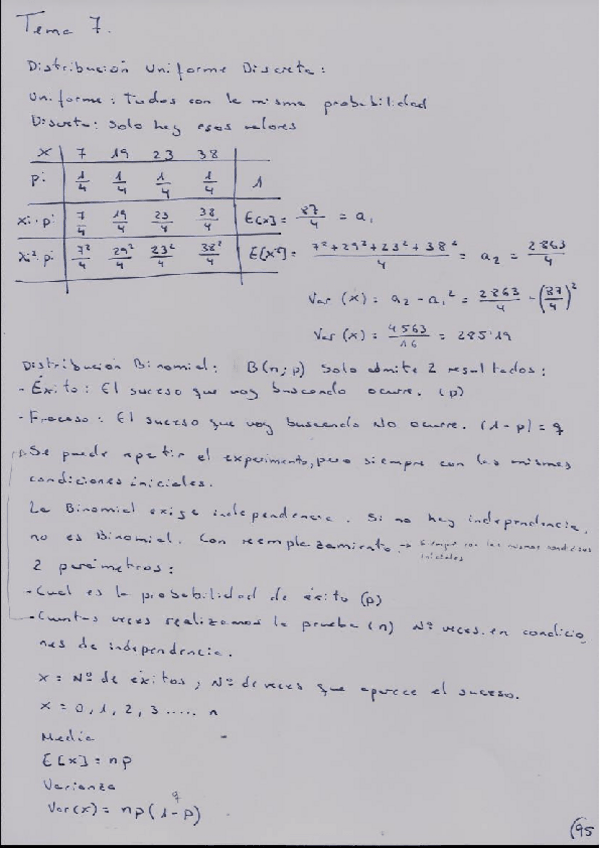 Tema 7.
Distribución Uniforme Discreta:
Uniforme: Todos con la misma probabilidad
Discreta: Solo hay esos valores
x 7 19 23 38
pi 1/4 1/4 1/4 1/4 1
xi·pi 7/4 19/4 23/4 38/4 E[x] = 87/4 = a1
xi²·pi 7²/4 29²/4 23²/4 38²/4 E[x²] = (7²+29²+23²+38²)/4 = a2 = 2863/4
Var (x) = a2 - a1² = 2863/4 - (87/4)²
Var (x) = 4563/16 = 285'19
Distribución Binomial: B(n;p) Solo admite 2 resultados:
- Éxito: El suceso que voy buscando ocurre. (p)
- Fracaso: El suceso que voy buscando No ocurre. (1-p) = q
Se puede repetir el experimento, pero siempre con las mismas
condiciones iniciales.
La Binomial exige independencia. Si no hay independencia,
no es Binomial. Con reemplazamiento. → Siempre con las mismas condiciones
iniciales
2 parámetros:
- Cual es la probabilidad de éxito (p)
- Cuantas veces realizamos la prueba (n) Nº veces en condicio
nes de independencia.
x = Nº de éxitos; Nº de veces que aparece el suceso.
x = 0, 1, 2, 3 ..... n
Media
E[x] = np
Varianza
q
Var(x) = np(1-p)
(95